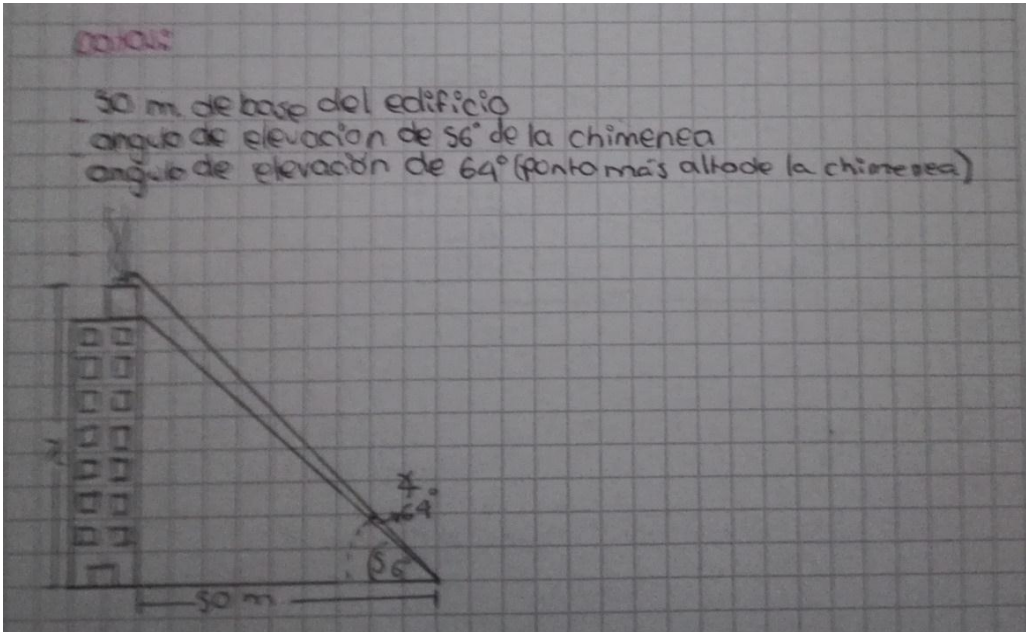 Datos:
- 50 m. de base del edificio
- angulo de elevacion de 56° de la chimenea
- angulo de elevación de 64° (ponto más alto de la chimenea)
64°
56
50 m